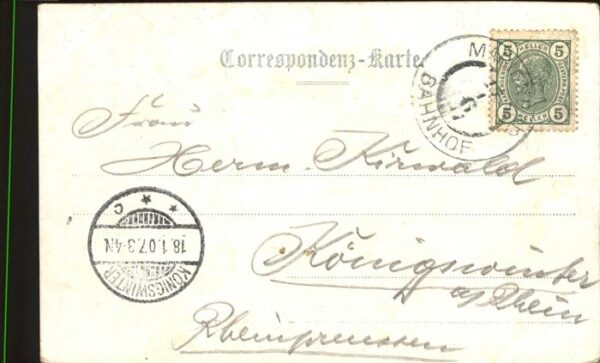 Correspondenz-Karte
5 HELLER 5
5 HELLER 5
BAHNHOF
Frau
Herm. Kirwald
Königswinter
a/Rhein
Rheinpreussen
KÖNIGSWINTER
18.1.07.3-4N
* * C